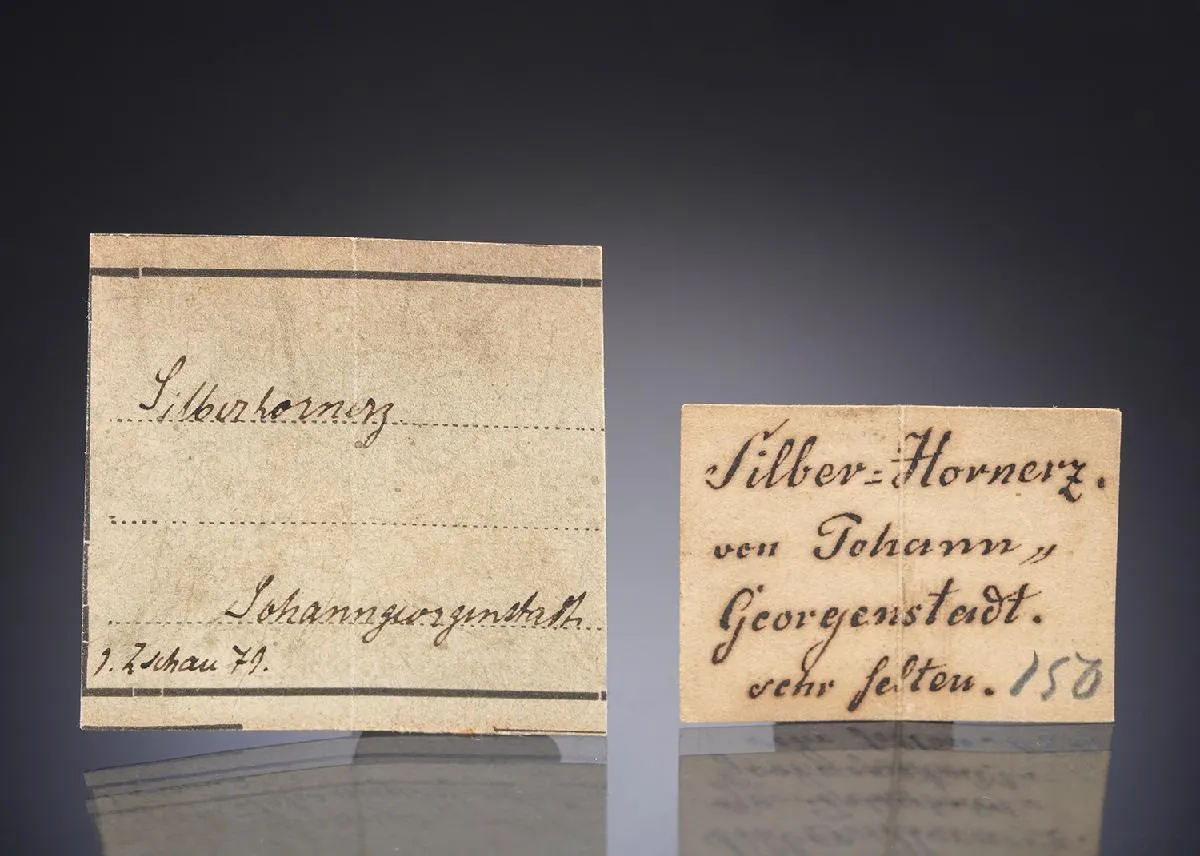 Silberhornerz
Johanngeorgenstadt.
Zschau 79.
Silber=Hornerz.
von Johann„
Georgenstadt.
sehr selten. 150